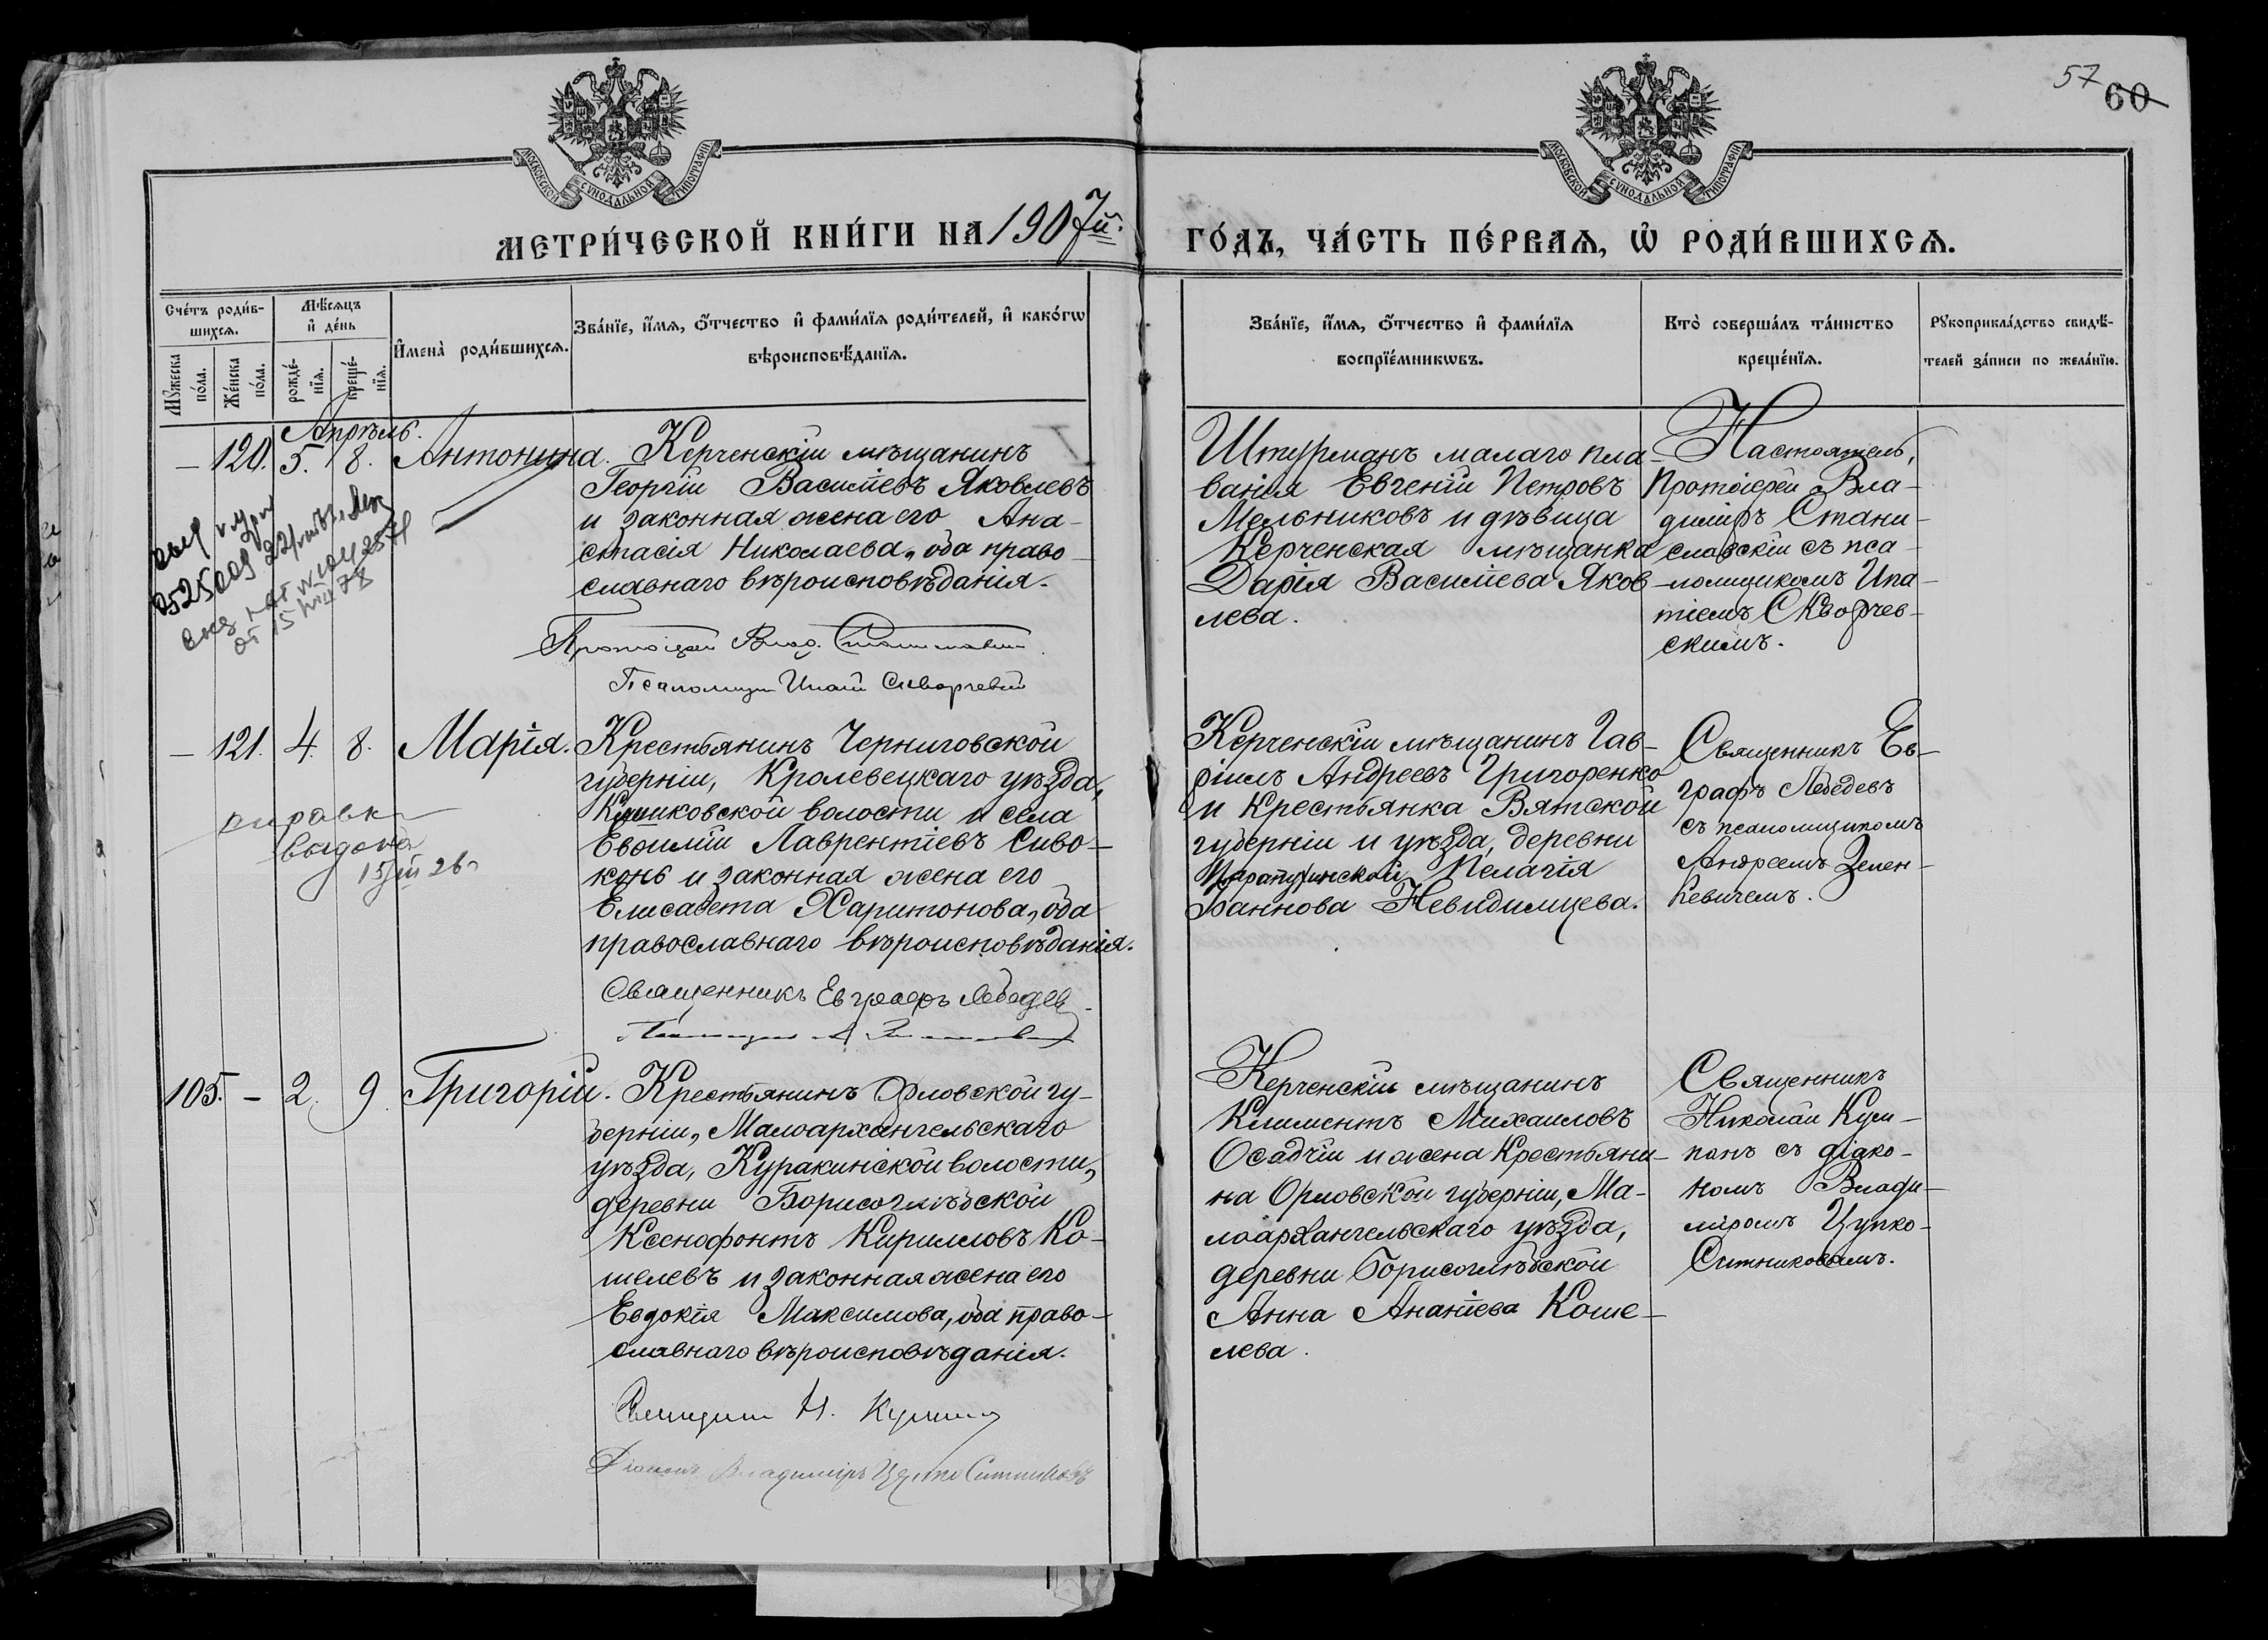 57
60
МОСКОВСКОЙ СѴНОДАЛЬНОЙ ТИПОГРАФІИ
МОСКОВСКОЙ СѴНОДАЛЬНОЙ ТИПОГРАФІИ
МЕТРИ́ЧЕСКОЙ КНИ́ГИ НА 1907й.
ГО́ДЪ, ЧА́СТЬ ПЕ́РВАѦ, Ѽ РОДИ́ВШИХСѦ.
Сче́тъ роди́в-
шихсѧ.
Мꙋжеска
по́ла.
Же́нска
по́ла.
Мѣ́сѧцъ
и҆ де́нь
рожде́-
нїѧ.
креще́-
нїѧ.
И҆мена̀ роди́вшихсѧ.
Зва́нїе, и҆́мѧ, ѻ҆́тчество и҆ фами́лїѧ роди́телей, и҆ како́гѡ
вѣроисповѣ́данїѧ.
Зва́нїе, и҆́мѧ, ѻ҆́тчество и҆ фами́лїѧ
воспрїе́мникѡвъ.
Кто̀ соверша́лъ та́инство
креще́нїѧ.
Рꙋкоприкла́дство свидѣ́-
телей за́писи по жела́нїю.
Апрѣль.
— 120. 5. 8. Антонина. Керченскій мѣщанинъ
Георгій Василіевъ Яковлевъ
и законная жена его Ана-
стасія Николаева, оба право-
славнаго вѣроисповѣданія.
Протоіерей Влад. Станиславскій.
Псаломщик Ипатій Скворчевскій
Штурманъ малаго пла-
ванія Евгеній Петровъ
Мельниковъ и дѣвица
Керченская мѣщанка
Дарія Василіева Яков-
лева.
Настоятель,
Протоіерей Вла-
димиръ Стани-
славскій съ пса-
ломщикомъ Ипа-
тіемъ Скворчев-
скимъ.
— 121. 4. 8. Марія. Крестьянинъ Черниговской
губерніи, Кролевецкаго уѣзда,
волости и села
Евѳимій Лаврентіевъ Сиво-
конь и законная жена его
Елисавета Харитонова, оба
православнаго вѣроисповѣданія.
Священникъ Евграфъ Лебедев
справка
выдана
15/III 26 г
Керченскій мѣщанинъ Гав-
ріилъ Андреевъ Григоренко
и Крестьянка Вятской
губерніи и уѣзда, деревни
Пелагія
Невидимцева.
Священникъ Ев-
графъ Лебедевъ
съ псаломщикомъ
Андреемъ Зелен-
кевичемъ.
105. — 2. 9. Григорій. Крестьянинъ Орловской гу-
берніи, Малоархангельскаго
уѣзда, Куракинской волости,
деревни Борисоглѣбской
Ксенофонтъ Кирилловъ Ко-
шелевъ и законная жена его
Евдокія Максимова, оба право-
славнаго вѣроисповѣданія.
Священникъ Н. Кушпан
Діаконъ Владимиръ Цупко Ситниковъ
Керченскій мѣщанинъ
Климентъ Михаиловъ
Осадчій и жена Крестьяни-
на Орловской губерніи, Ма-
лоархангельскаго уѣзда,
деревни Борисоглѣбской
Анна Ананіева Коше-
лева.
Священникъ
Николай Куш-
панъ съ діако-
номъ Влади-
міромъ Цупко-
Ситниковымъ.